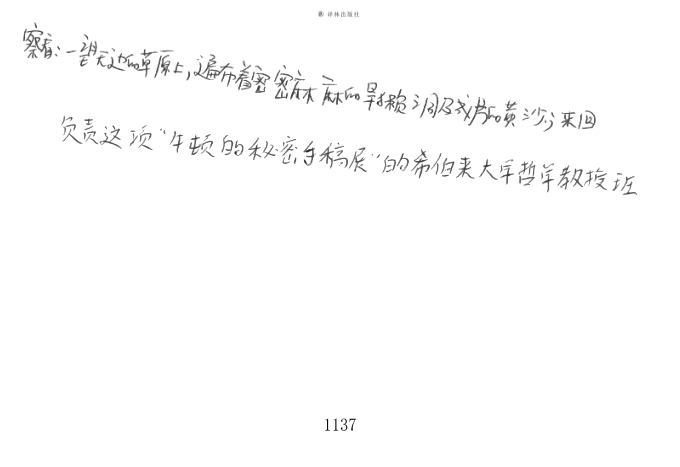 译林出版社
察看:一望无边的草原上,遍布着密密麻麻的旱獭洞及成片的黄沙,来回
负责这项“牛顿的秘密手稿展”的希伯来大学哲学教授班
1137